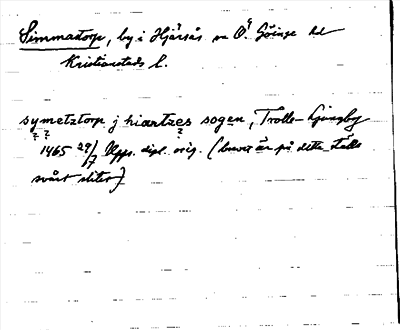 Simmastorp, by i Hjärsås sn Ö. Göinge hd
Kristianstads l.
symetztorp j hiærtzes sogen, Trolle-Ljungby
? ? ?
1465 29/7 Upps. dipl. orig. (brevet är på detta ställe
svårt slitet)